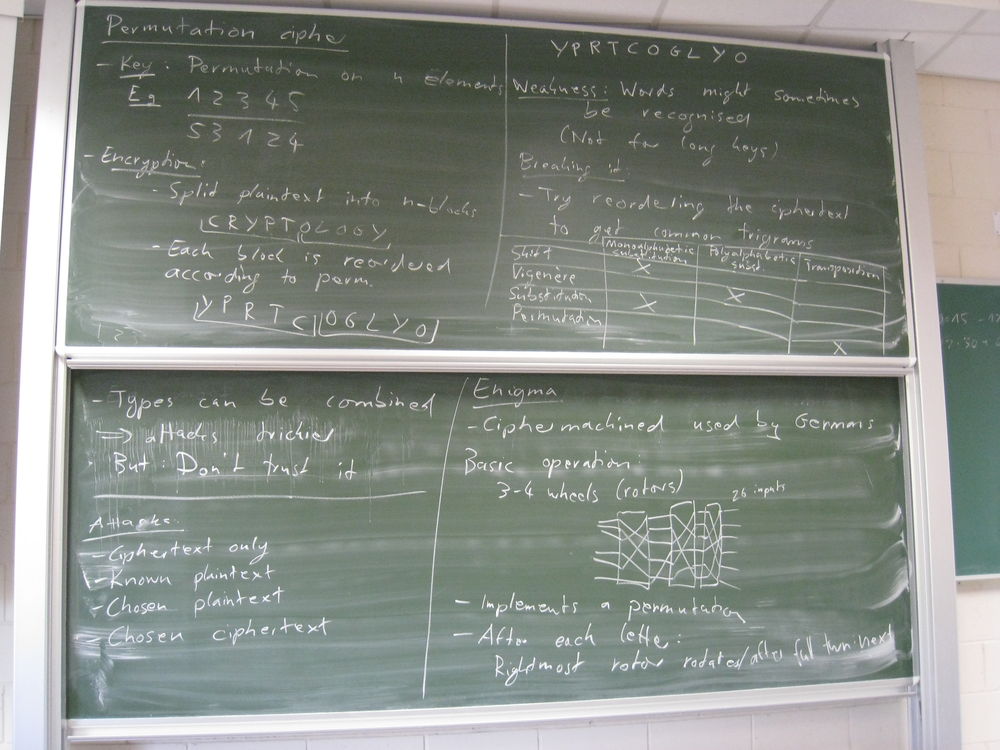 Permutation ciphe
- Key: Permutation on n Elements
Eg 1 2 3 4 5
5 3 1 2 4
- Encryption:
- Split plaintext into n-blocks
CRYPTOLOGY
- Each block is reordered
according to perm.
YPRTC|OGLYO
YPRTCOGLYO
Weakness: Words might sometimes
be recognised
(Not for long keys)
Breaking it:
- Try reordering the ciphertext
to get common trigrams
Monoalphabetic substitution Polyalphabetic subst. Transposition
Shift X
Vigenère X
Substitution X
Permutation X
- Types can be combined
=> attacks trickier
But: Don't trust it
Attacks:
- Ciphertext only
- Known plaintext
- Chosen plaintext
- Chosen ciphertext
Enigma
- Cipher machined used by Germans
Basic operation:
3-4 wheels (rotors)
26 inputs
- Implements a permutation
- After each letter:
Rightmost rotor rotates/after full turn: next